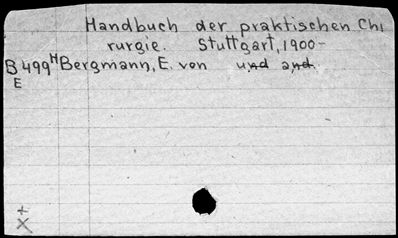 Handbuch der praktischen Chi
rurgie. Stuttgart, 1900-
B499H Bergmann, E. von und and.
E
+
X